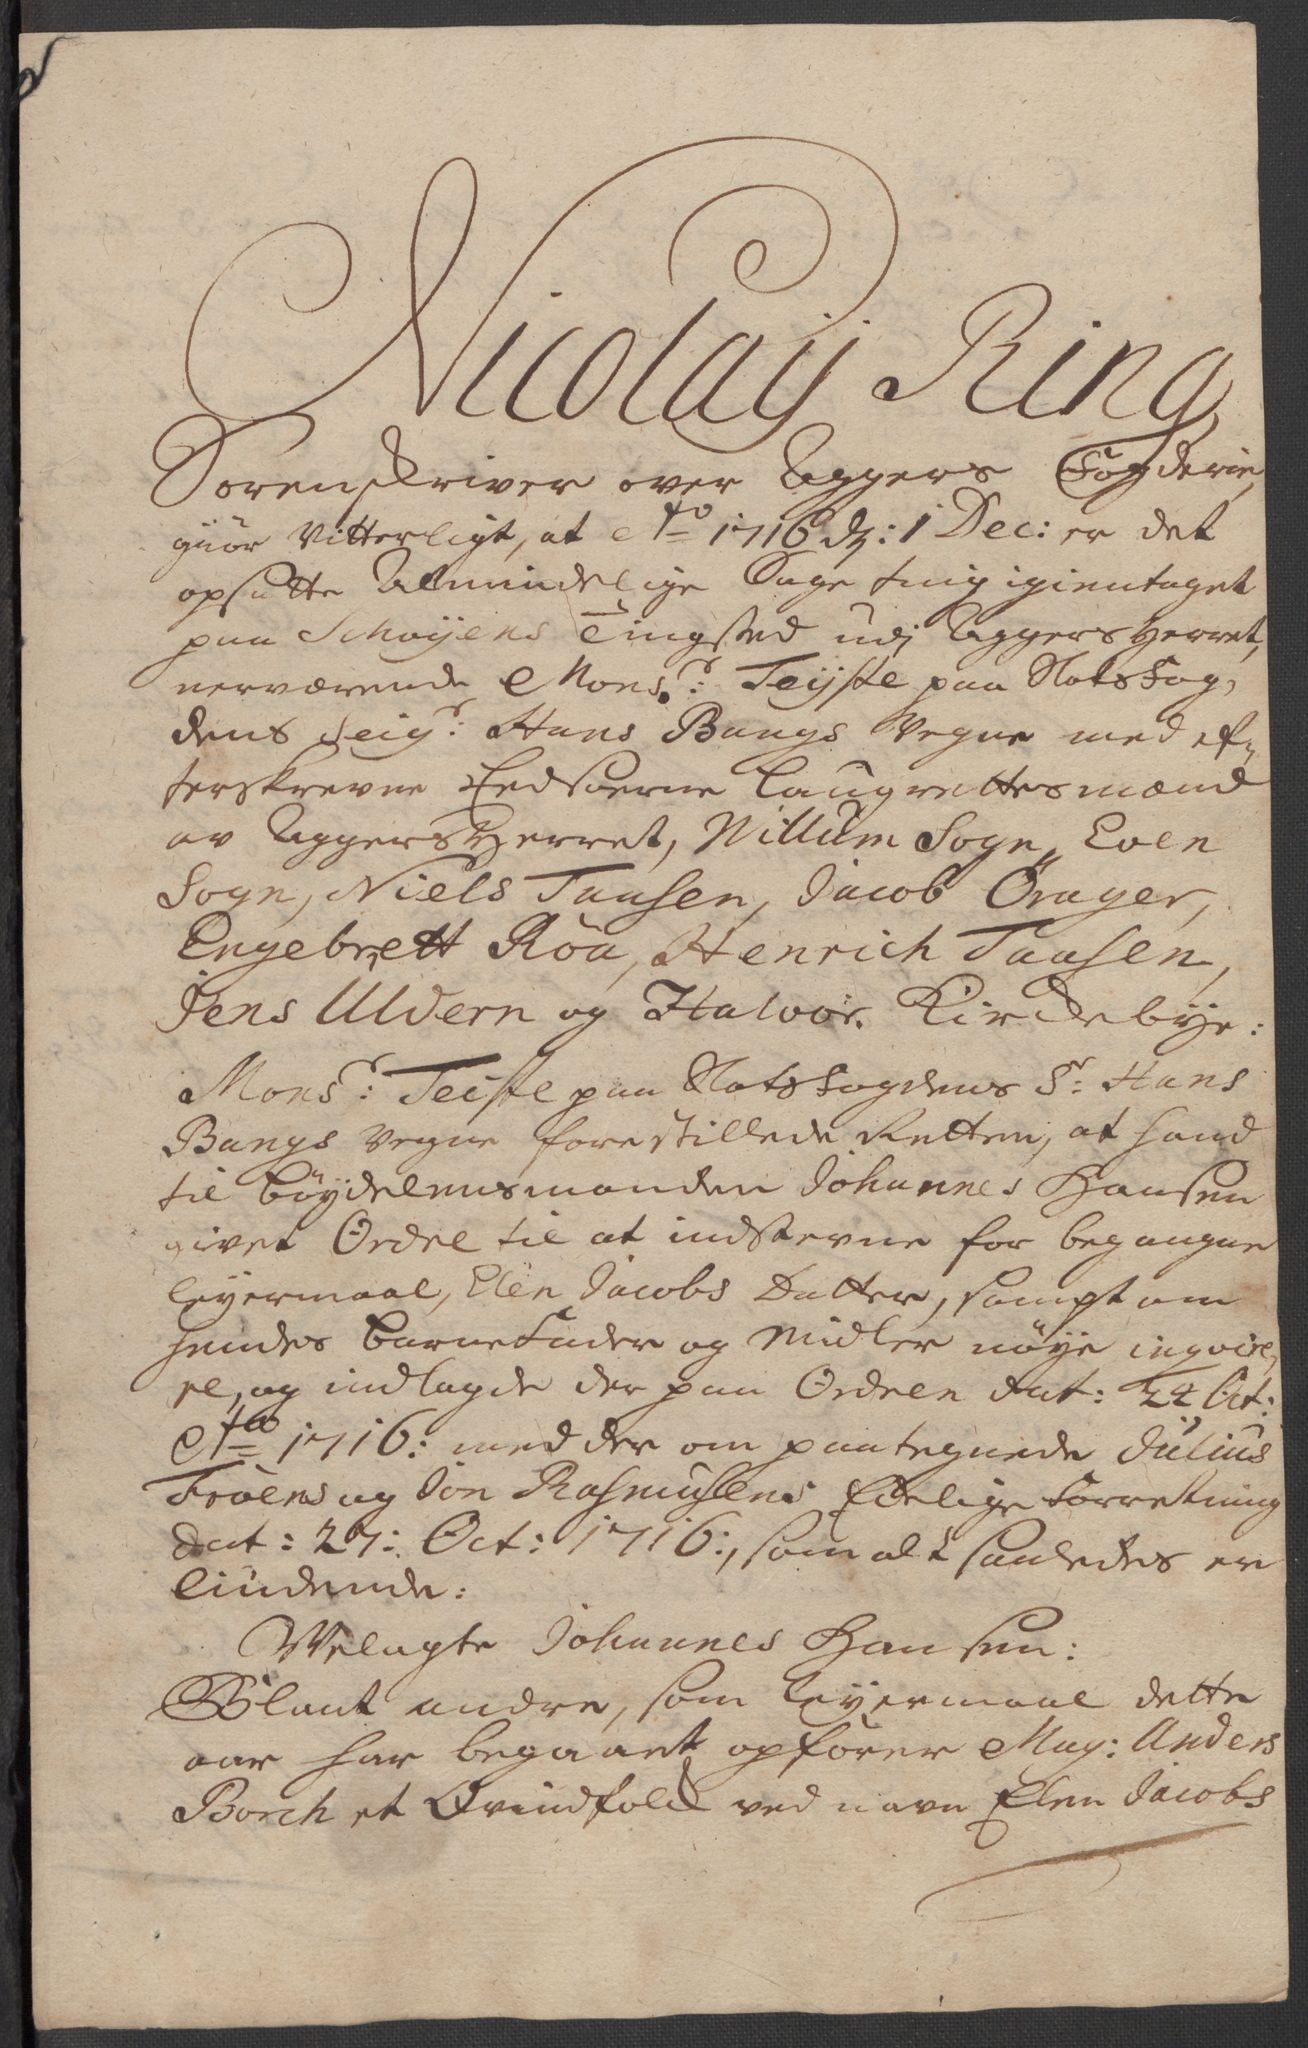 Nicolaij Ring
Sorenskriver over Aggers Fogderie,
giör Vitterligt, at Ao 1716 dj: 1 Dec: er det
opsatte Almindelige Sage ting igientaget
paa Schøyens Tingsted udj Aggers Herret,
nerværende Monsr: Teijste paa Slotsfog,
dens Seigr: Hans Bangs Vegne med ef,
terskrevne Eedsoerne Laugrettesmænd
av Aggers Herret, Willum Sogn, Even
Sogn, Niels Taasen, Jacob Örager,
Engebrett Röa, Henrich Taasen,
Jens Uldern og Halvor Kirckebÿe:
Monsr: Teiste paa Slotsfogdens Sr: Hans
Bangs Vegne forestillede Retten, at hand
til böydelensmanden Johannes Hansen
givet Ordre til at indstevne for begangne
leyermaal, Elen Jacobs Datter, sampt om
hendes barnefader og Midler nöye inqvire,
re, og indlagde der paa Ordren dat: 22 Oct:
Ao 1716: med der om paategnede Julius
Tröens og Jon Rasmusens Edelige Forretning
dat: 27: Oct: 1716:, som alt saaledes er
liudende:
Velagte Johannes Hansen:
Blant andre, som leyermaal dette
aar har begaaet opförer Mag: Anders
Borch et Qvindfolck ved navn Elen Jacobs